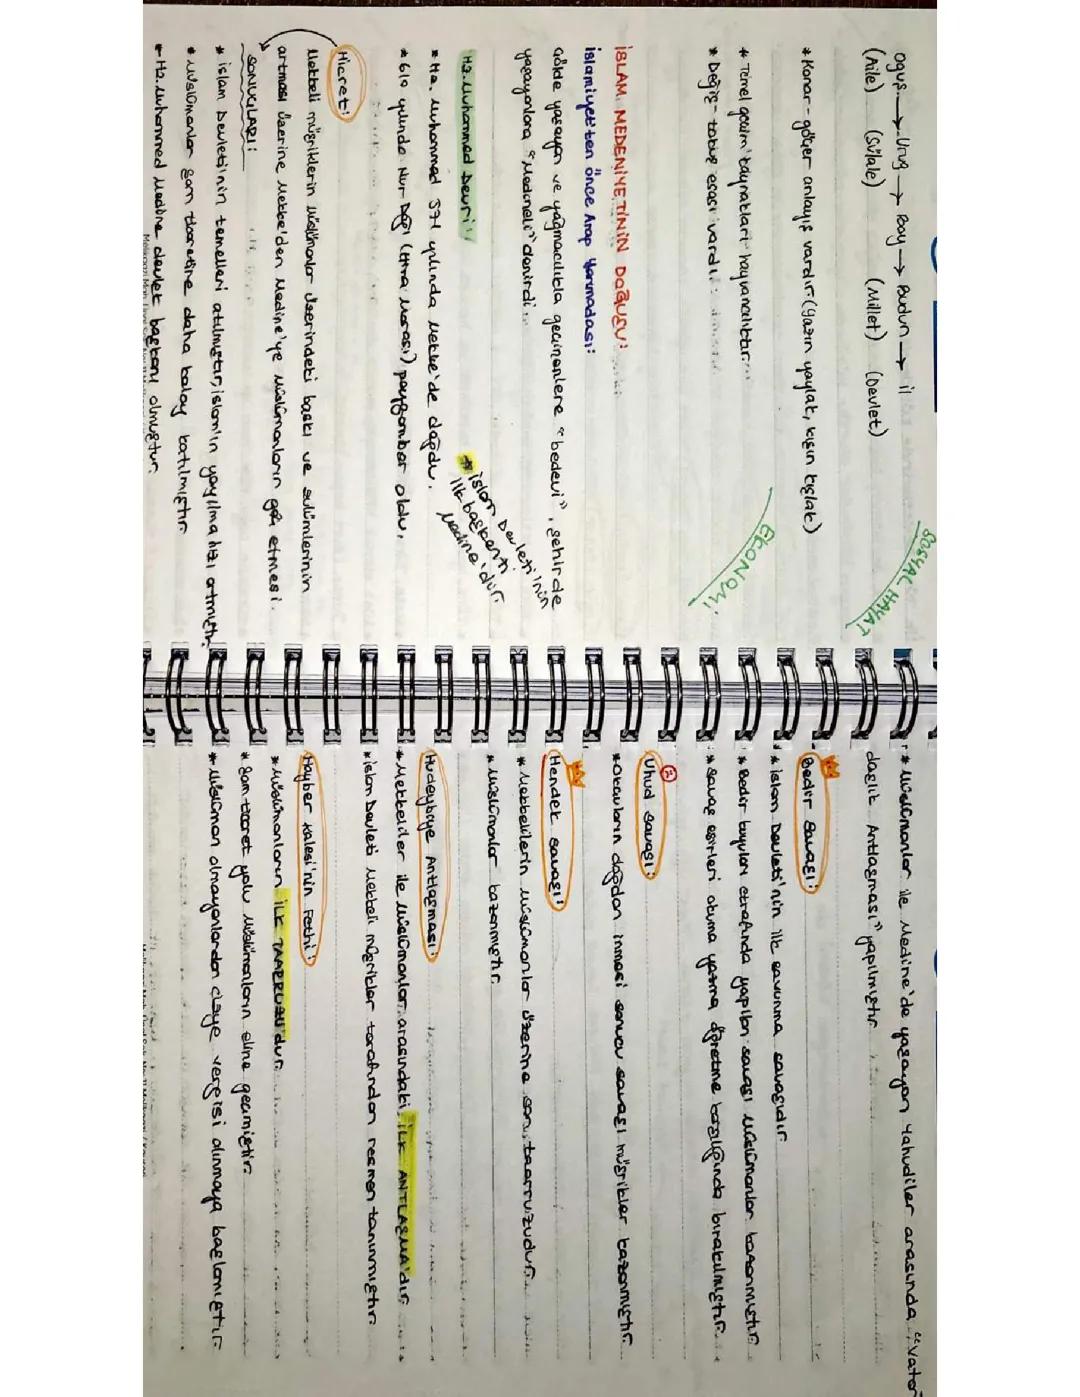 SOSYAL HAYAT
Oguş → Urug → Boy → Budun → il
(Aile) (Sülale) (Millet) (Devlet)
* Konar-göçer anlayış vardır. (yazın yaylak, kışın kışlak)
EKONOMİ
* Temel geçim kaynakları hayvancılıktır.
* Değiş-tokuş esası vardır.
İSLAM MEDENİYETİNİN DOĞUŞU:
İslamiyet'ten önce Arap Yarımadası:
Çölde yaşayan ve yağmacılıkla geçinenlere "bedevi", şehirde
yaşayanlara "Medeneli" denirdi.
Hz. Muhammed Devri:
* İslam Devleti'nin
ilk başkenti
Medine'dir.
* Hz. Muhammed 571 yılında Mekke'de doğdu.
* 610 yılında Nur Dağı (Hira Mağrası) peygamber oldu.
Hicret:
Mekkeli müşriklerin Müslümanlar üzerindeki baskı ve zulümlerinin
artması üzerine Mekke'den Medine'ye Müslümanların göç etmesi.
SONUÇLARI:
* İslam Devleti'nin temelleri atılmıştır, islam'ın yayılma hızı artmıştır.
* Müslümanlar Şam ticaretine daha kolay katılmıştır.
* Hz. Muhammed Medine devlet başkanı olmuştur.
* Müslümanlar ile Medine'de yaşayan Yahudiler arasında "Vatan
daşlık Antlaşması" yapılmıştır.
Bedir Savaşı:
* İslam Devleti'nin ilk savunma savaşıdır.
* Bedir kuyuları etrafında yapılan savaşı Müslümanlar kazanmıştır.
* Savaş esirleri okuma yazma öğretme karşılığında bırakılmıştır.
Uhud Savaşı:
* Okçuların dağdan inmesi sonucu savaşı müşrikler kazanmıştır.
Hendek Savaşı:
* Mekkelilerin Müslümanlar üzerine son taarruzudur.
* Müslümanlar kazanmıştır.
Hudeybiye Antlaşması:
* Mekkeliler ile Müslümanlar arasındaki İLK ANTLAŞMA'dır.
* İslam Devleti Mekkeli müşrikler tarafından resmen tanınmıştır.
Hayber Kalesi'nin Fethi:
* Müslümanların İLK TAARRUZU'dur.
* Şam ticaret yolu Müslümanların eline geçmiştir.
* Müslüman olmayanlardan cizye vergisi alınmaya başlamıştır.